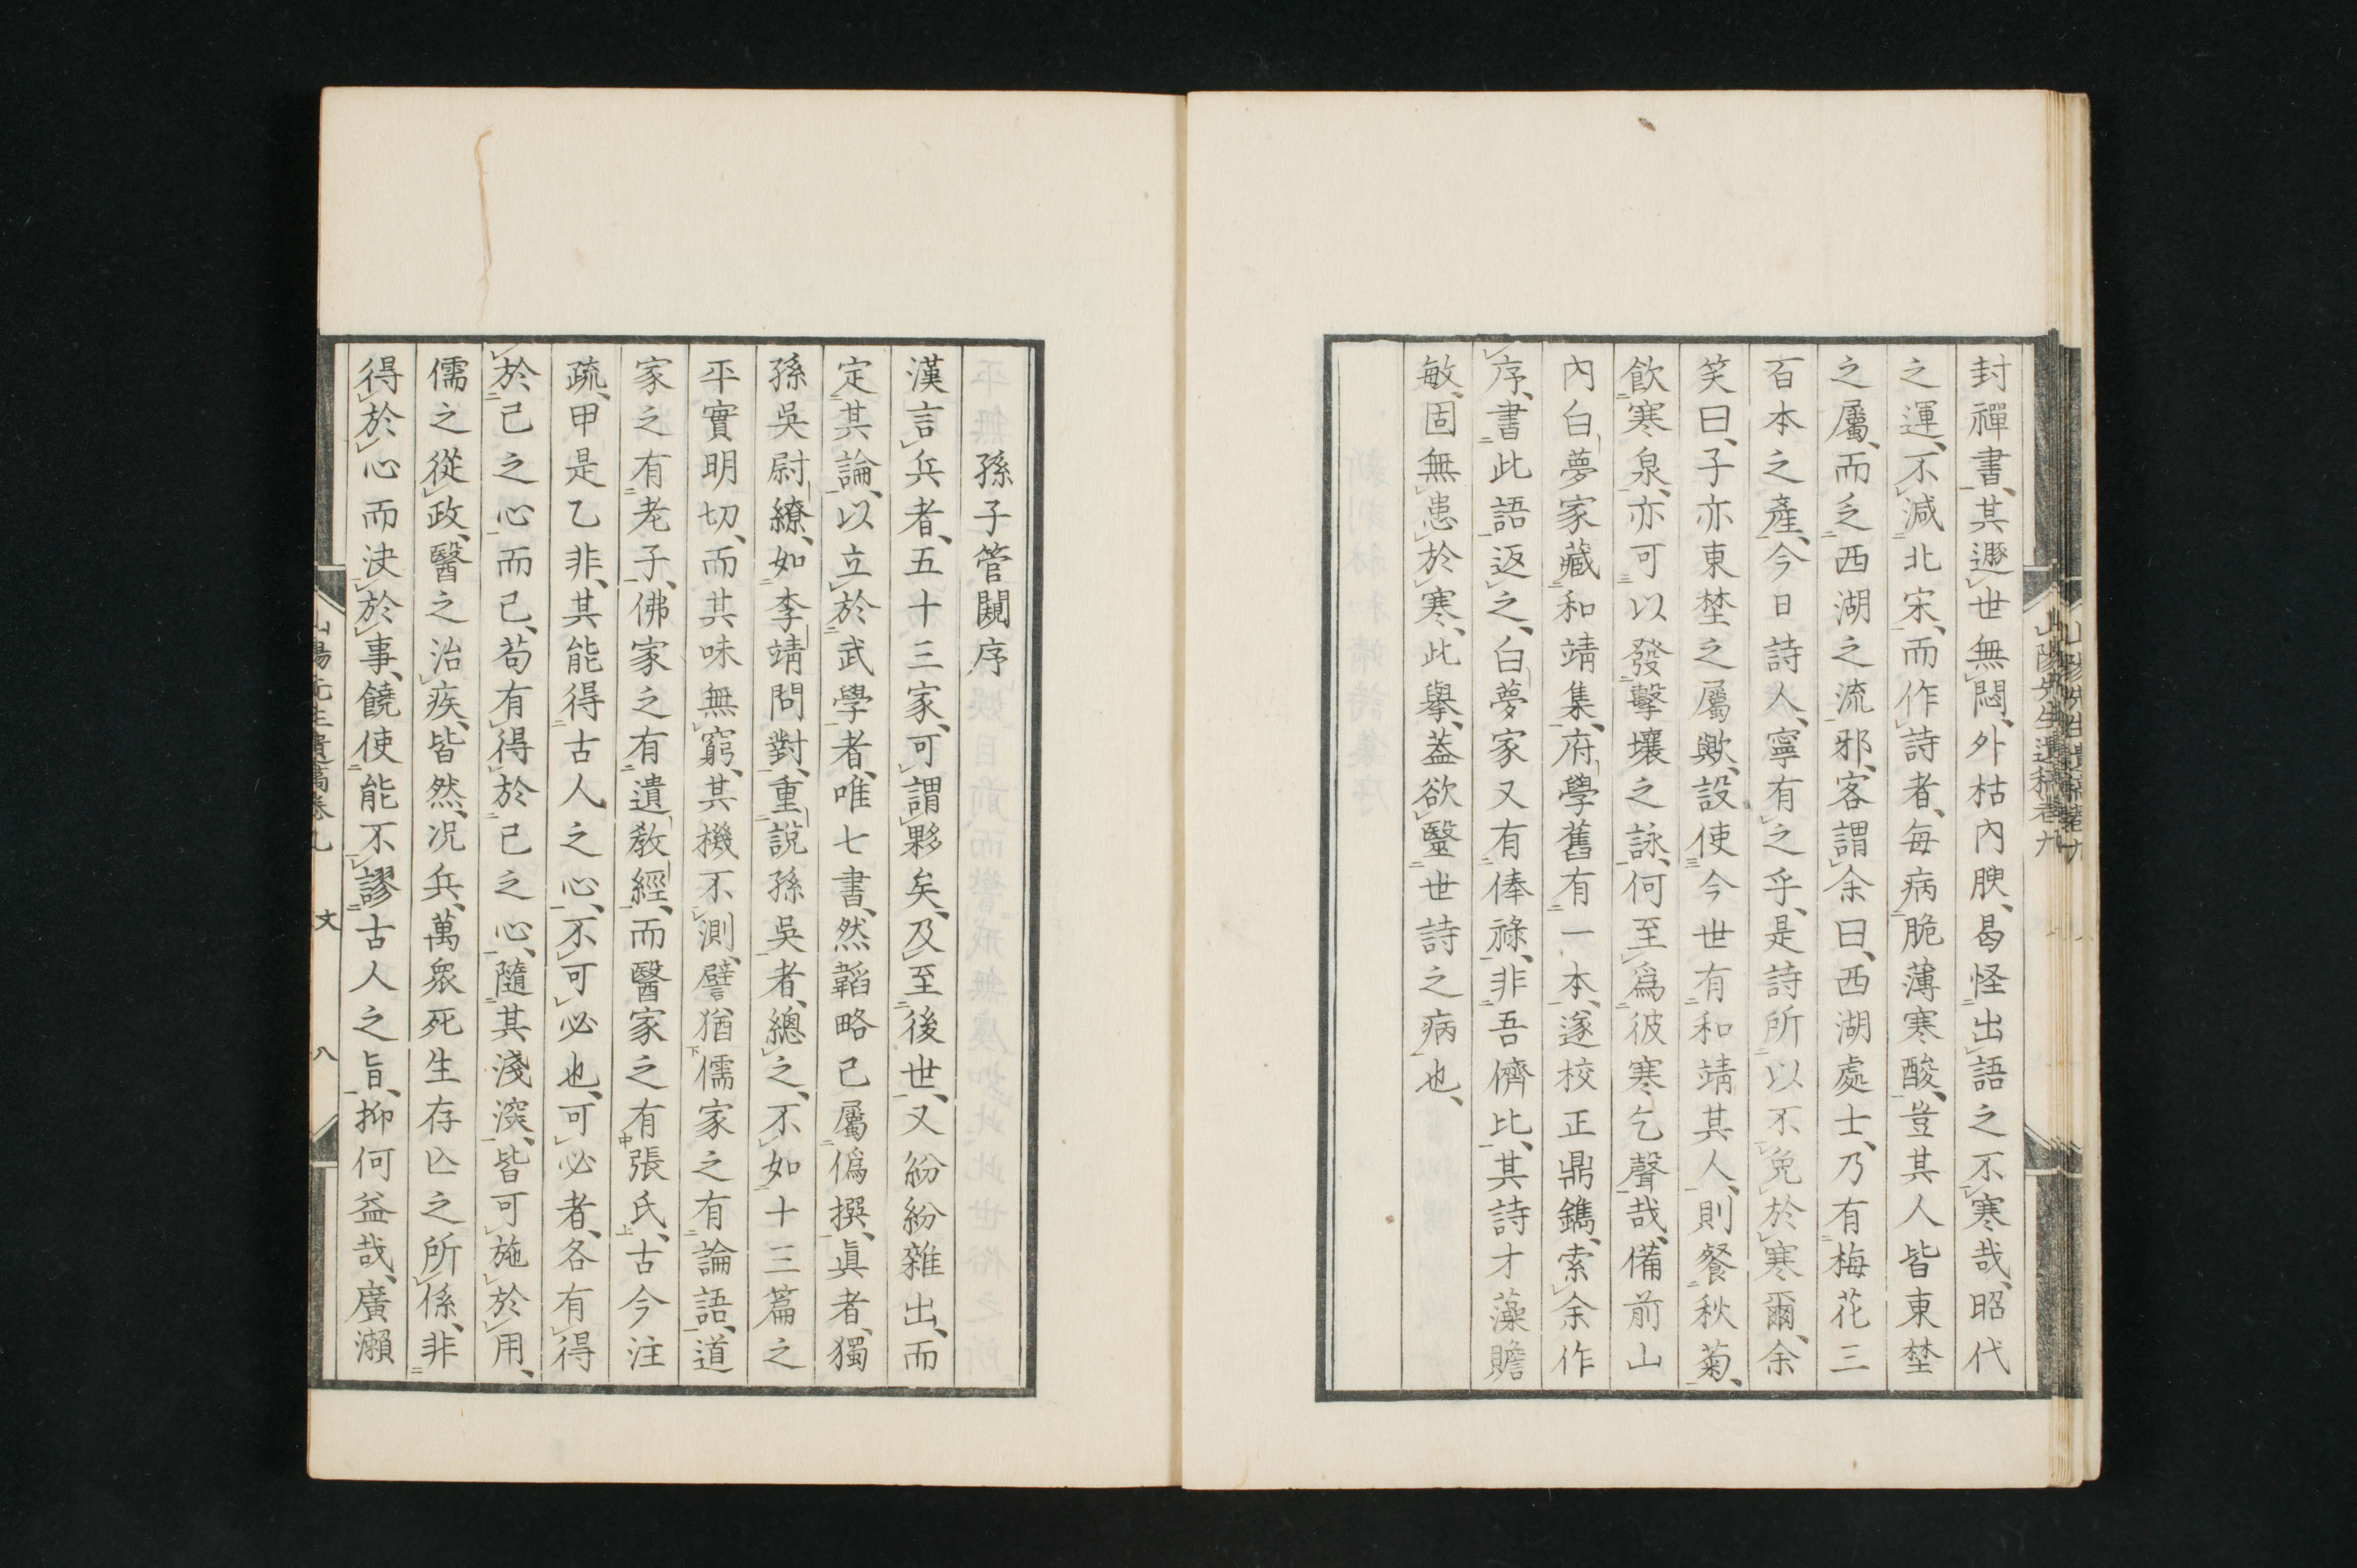 封禪書、其遯世無悶、外枯內腴、曷怪出語之不寒哉、昭代
之運、不減北宋、而作詩者、每病脆薄寒酸、豈其人皆東埜
之屬、而乏西湖之流邪、客謂余曰、西湖處士、乃有梅花三
百本之產、今日詩人、寧有之乎、是詩所以不免於寒爾、余
笑曰、子亦東埜之屬歟、設使今世有和靖其人、則餐秋菊、
飲寒泉、亦可以發擊壤之詠、何至爲彼寒乞聲哉、備前山
內白夢家藏和靖集、府學舊有一本、遂校正鼎鐫、索余作
序、書此語返之、白夢家又有俸祿、非吾儕比、其詩才藻贍
敏、固無患於寒、此擧、蓋欲毉世詩之病也、
孫子管闚序
漢言兵者、五十三家、可謂夥矣、及至後世、又紛紛雜出、而
定其論、以立於武學者、唯七書、然韜略已屬僞撰、眞者、獨
孫吳尉繚、如李靖問對、重說孫吳者、總之、不如十三篇之
平實明切、而其味無窮、其機不測、譬猶儒家之有論語、道
家之有老子、佛家之有遺敎經、而醫家之有張氏、古今注
疏、甲是乙非、其能得古人之心、不可必也、可必者、各有得
於己之心而已、苟有得於己之心、隨其淺深、皆可施於用、
儒之從政、醫之治疾、皆然、况兵、萬衆死生存亾之所係、非
得於心而決於事、饒使能不謬古人之旨、抑何益哉、廣瀨
山陽先生遺稿卷九 文 八
山陽先生遺稿卷九